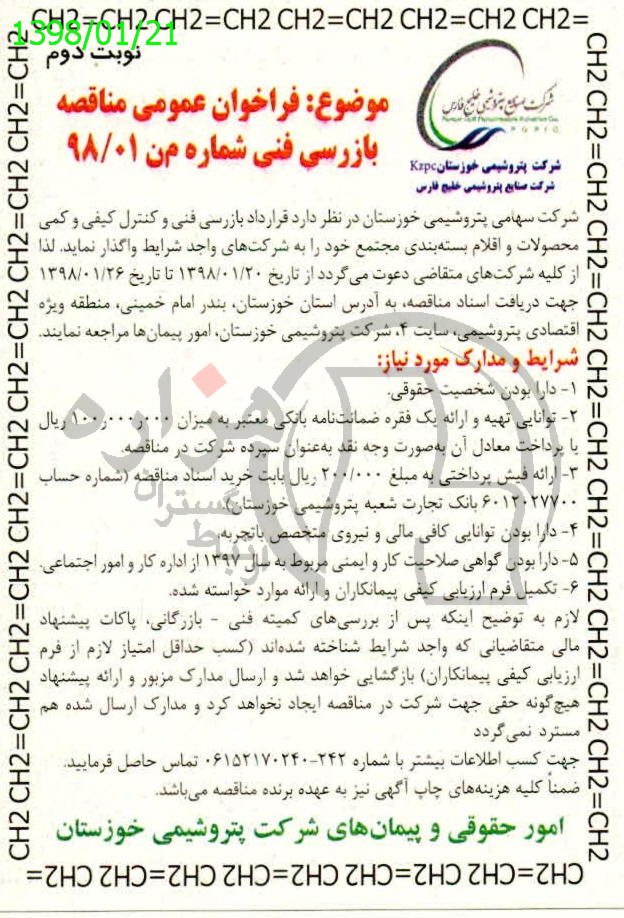 CH2=CH2 CH2=CH2 CH2=CH2 CH2=CH2 CH2=
1398/01/21
نوبت دوم
شرکت صنایع پتروشیمی خلیج فارس
Persian Gulf Petrochemical Industries Co.
P G P I C
شرکت پتروشیمی خوزستان Kzpc
شرکت صنایع پتروشیمی خلیج فارس
موضوع: فراخوان عمومی مناقصه
بازرسی فنی شماره م‌ن ۹۸/۰۱
شرکت سهامی پتروشیمی خوزستان در نظر دارد قرارداد بازرسی فنی و کنترل کیفی و کمی
محصولات و اقلام بسته‌بندی مجتمع خود را به شرکت‌های واجد شرایط واگذار نماید. لذا
از کلیه شرکت‌های متقاضی دعوت می‌گردد از تاریخ ۱۳۹۸/۰۱/۲۰ تا تاریخ ۱۳۹۸/۰۱/۲۶
جهت دریافت اسناد مناقصه، به آدرس استان خوزستان، بندر امام خمینی، منطقه ویژه
اقتصادی پتروشیمی، سایت ۴، شرکت پتروشیمی خوزستان، امور پیمان‌ها مراجعه نمایند.
شرایط و مدارک مورد نیاز:
۱- دارا بودن شخصیت حقوقی.
۲- توانایی تهیه و ارائه یک فقره ضمانت‌نامه بانکی معتبر به میزان ۱۰۰ر۰۰۰ر۰۰۰ ریال
یا پرداخت معادل آن به‌صورت وجه نقد به‌عنوان سپرده شرکت در مناقصه.
۳- ارائه فیش پرداختی به مبلغ ۲۰۰/۰۰۰ ریال بابت خرید اسناد مناقصه (شماره حساب
۶۰۱۲۰۲۷۷۰۰ بانک تجارت شعبه پتروشیمی خوزستان).
۴- دارا بودن توانایی کافی مالی و نیروی متخصص باتجربه.
۵- دارا بودن گواهی صلاحیت کار و ایمنی مربوط به سال ۱۳۹۷ از اداره کار و امور اجتماعی.
۶- تکمیل فرم ارزیابی کیفی پیمانکاران و ارائه موارد خواسته شده.
لازم به توضیح اینکه پس از بررسی‌های کمیته فنی - بازرگانی، پاکات پیشنهاد
مالی متقاضیانی که واجد شرایط شناخته شده‌اند (کسب حداقل امتیاز لازم از فرم
ارزیابی کیفی پیمانکاران) بازگشایی خواهد شد و ارسال مدارک مزبور و ارائه پیشنهاد
هیچ‌گونه حقی جهت شرکت در مناقصه ایجاد نخواهد کرد و مدارک ارسال شده هم
مسترد نمی‌گردد
جهت کسب اطلاعات بیشتر با شماره ۲۴۲-۰۶۱۵۲۱۷۰۲۴۰ تماس حاصل فرمایید.
ضمناً کلیه هزینه‌های چاپ آگهی نیز به عهده برنده مناقصه می‌باشد.
امور حقوقی و پیمان‌های شرکت پتروشیمی خوزستان
CH2=CH2 CH2=CH2 CH2=CH2 CH2=CH2=
هزاره
گستران